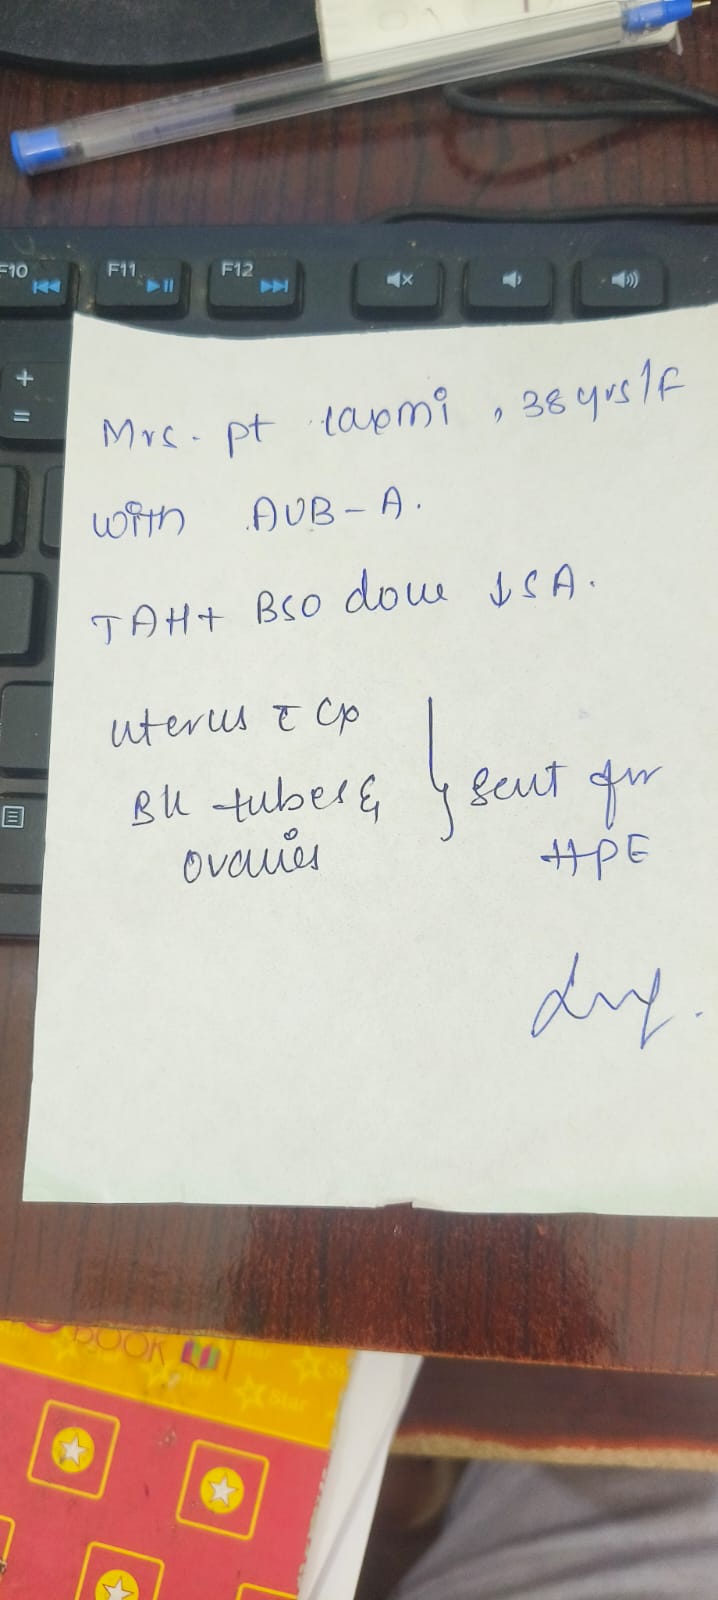 F10
F11
F12
+
=
Mrs. pt laxmi, 38 yrs/F
with AUB-A.
TAH+ BSO done ↓SA.
uterus c̄ Cx
B/L tubes &
ovaries
} sent for
HPE
BOOK
Star